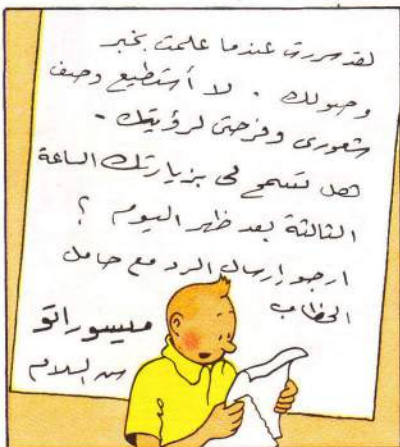 لقد سررت عندما علمت بخبر
وصولك . لا أستطيع وصف
شعورى وفرحتى لرؤيتك .
هل تسمح لى بزيارتك الساعة
الثالثة بعد ظهر اليوم ؟
ارجو إرسال الرد مع حامل
الخطاب
من السلام